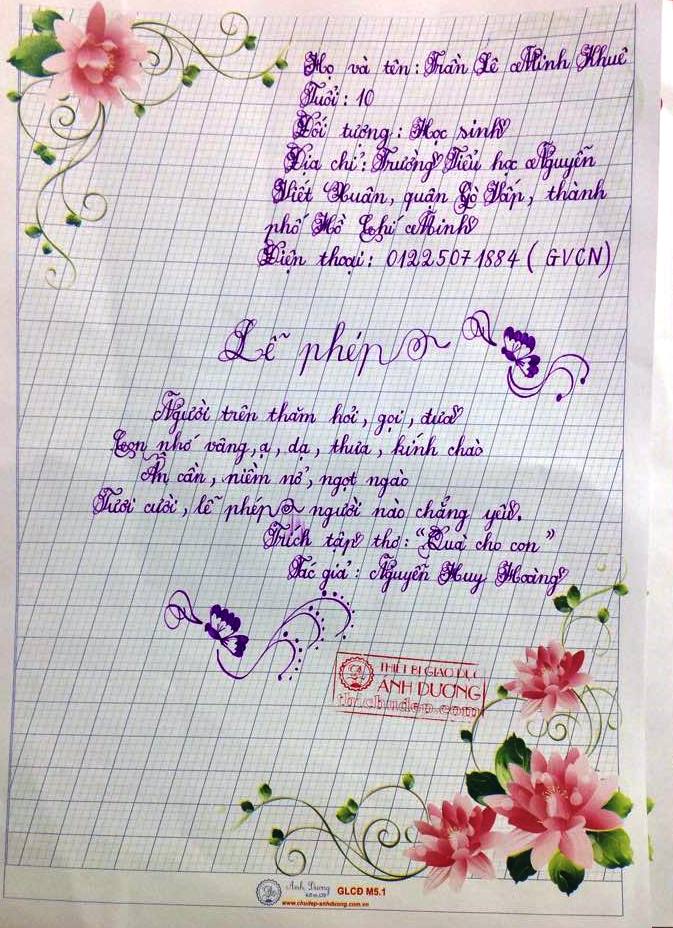 Họ và tên: Trần Lê Minh Khuê
Tuổi: 10
Đối tượng: Học sinh
Địa chỉ: Trường Tiểu học Nguyễn
Viết Xuân, quận Gò Vấp, thành
phố Hồ Chí Minh
Điện thoại: 01225071884 (GVCN)
Lễ phép
Người trên thăm hỏi, gọi, đưa
Con nhớ vâng, ạ, dạ, thưa, kính chào
Ân cần, niềm nở, ngọt ngào
Tươi cười, lễ phép người nào chẳng yêu.
Trích tập thơ: "Quà cho con"
Tác giả: Nguyễn Huy Hoàng
THIẾT BỊ GIÁO DỤC
ÁNH DƯƠNG
thichudep.com
Ánh Dương
GLCĐ M5.1
www.chudep-anhduong.com.vn